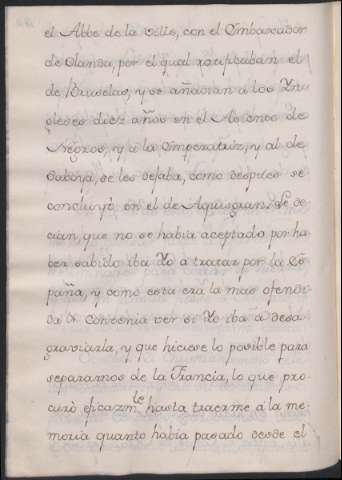 el Abbe de la Ville, con el Embaxador
de Olanda, por el qual ratificaban el
de Bruselas, y se añadian a los Yn-
gleses diez años en el Asiento de
Negros, y a la Emperatriz, y al de
Saboya, se les dejaba, como despues se
concluyò en el de Aquisgran. Se de-
cian, que no se habia aceptado por ha-
ber sabido iba Yo à tratar por la Es-
paña, y como esta era la mas ofendi-
da convenia ver si Yo iba à desa-
graviarla, y que hiciese lo posible para
separarnos de la Francia, lo que pro-
curò eficazm.te hasta traerme à la me-
moria quanto habia pasado desde el